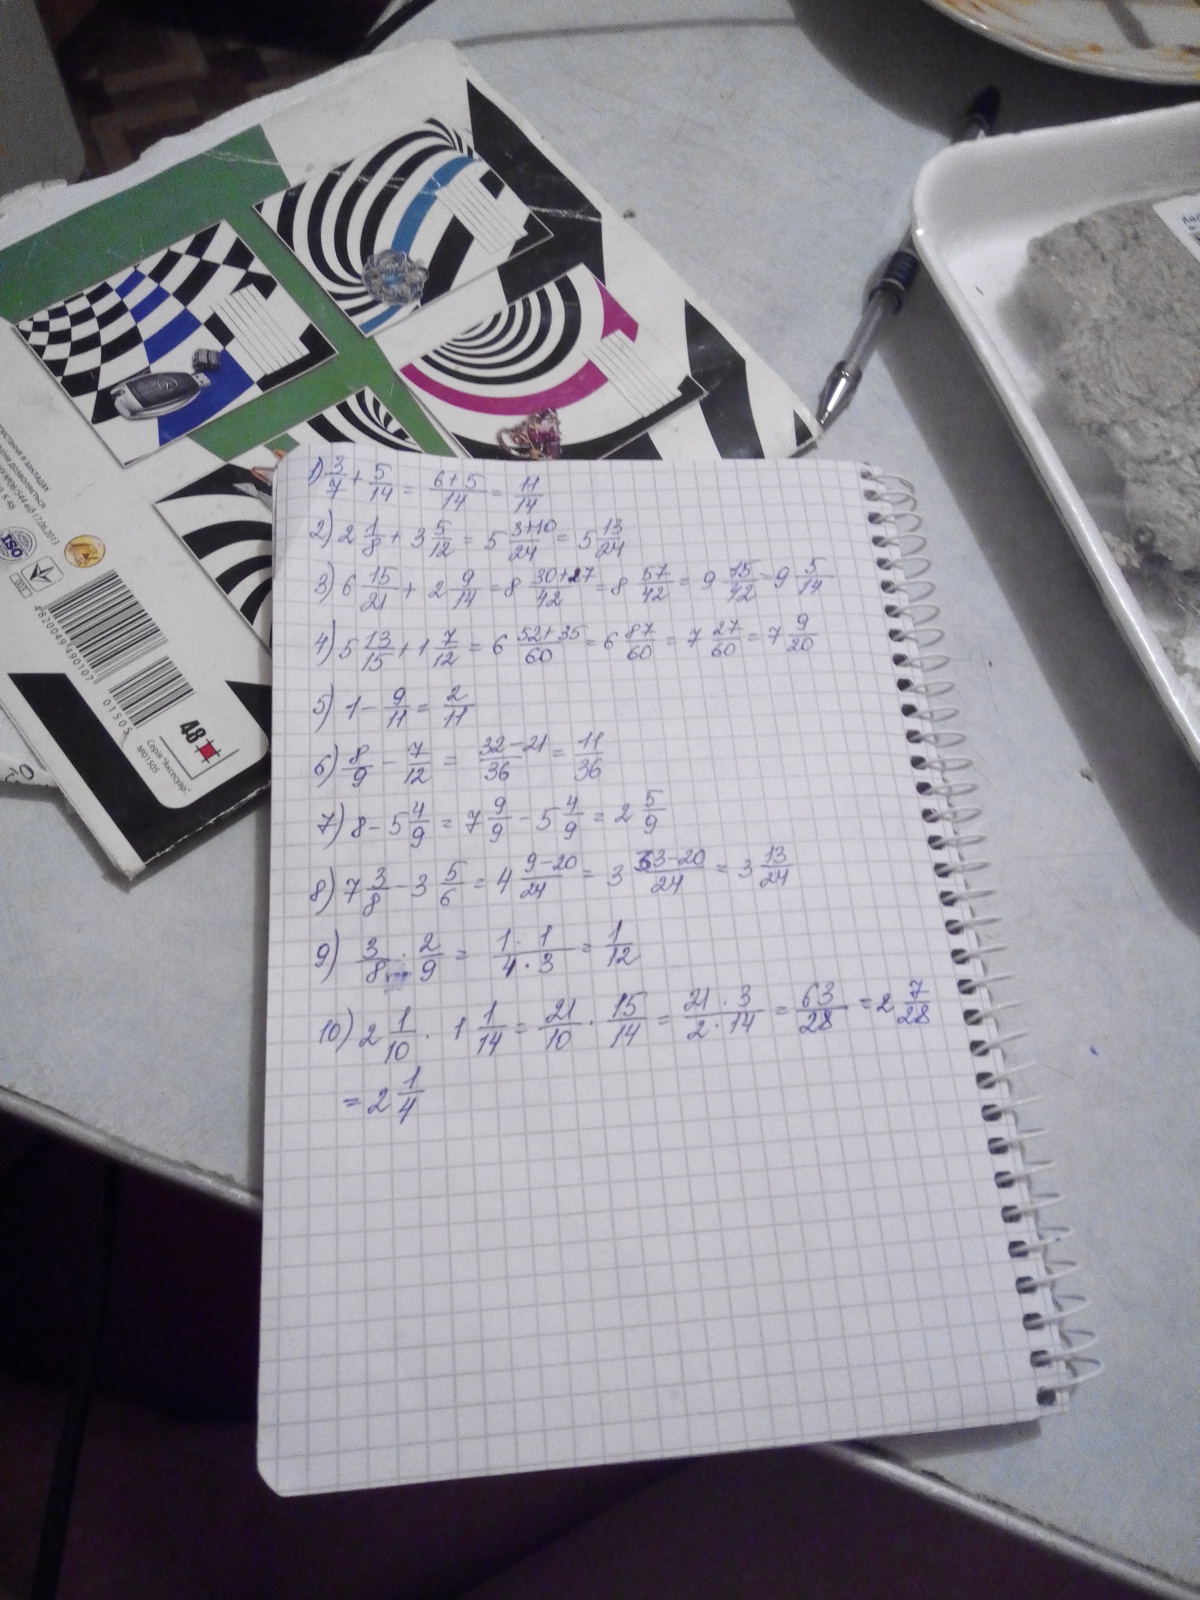 1) 3/7 + 5/14 = (6+5)/14 = 11/14
2) 2 1/8 + 3 5/12 = 5 (3+10)/24 = 5 13/24
3) 6 15/21 + 2 9/14 = 8 (30+27)/42 = 8 57/42 = 9 15/42 = 9 5/14
4) 5 13/15 + 1 7/12 = 6 (52+35)/60 = 6 87/60 = 7 27/60 = 7 9/20
5) 1 - 9/11 = 2/11
6) 8/9 - 7/12 = (32-21)/36 = 11/36
7) 8 - 5 4/9 = 7 9/9 - 5 4/9 = 2 5/9
8) 7 3/8 - 3 5/6 = 4 (9-20)/24 = 3 (33-20)/24 = 3 13/24
9) 3/8 · 2/9 = (1·1)/(4·3) = 1/12
10) 2 1/10 · 1 1/14 = 21/10 · 15/14 = (21·3)/(2·14) = 63/28 = 2 7/28
= 2 1/4
ISO
4820049490107
01505
48
Серія "Аксесуар"
№01505